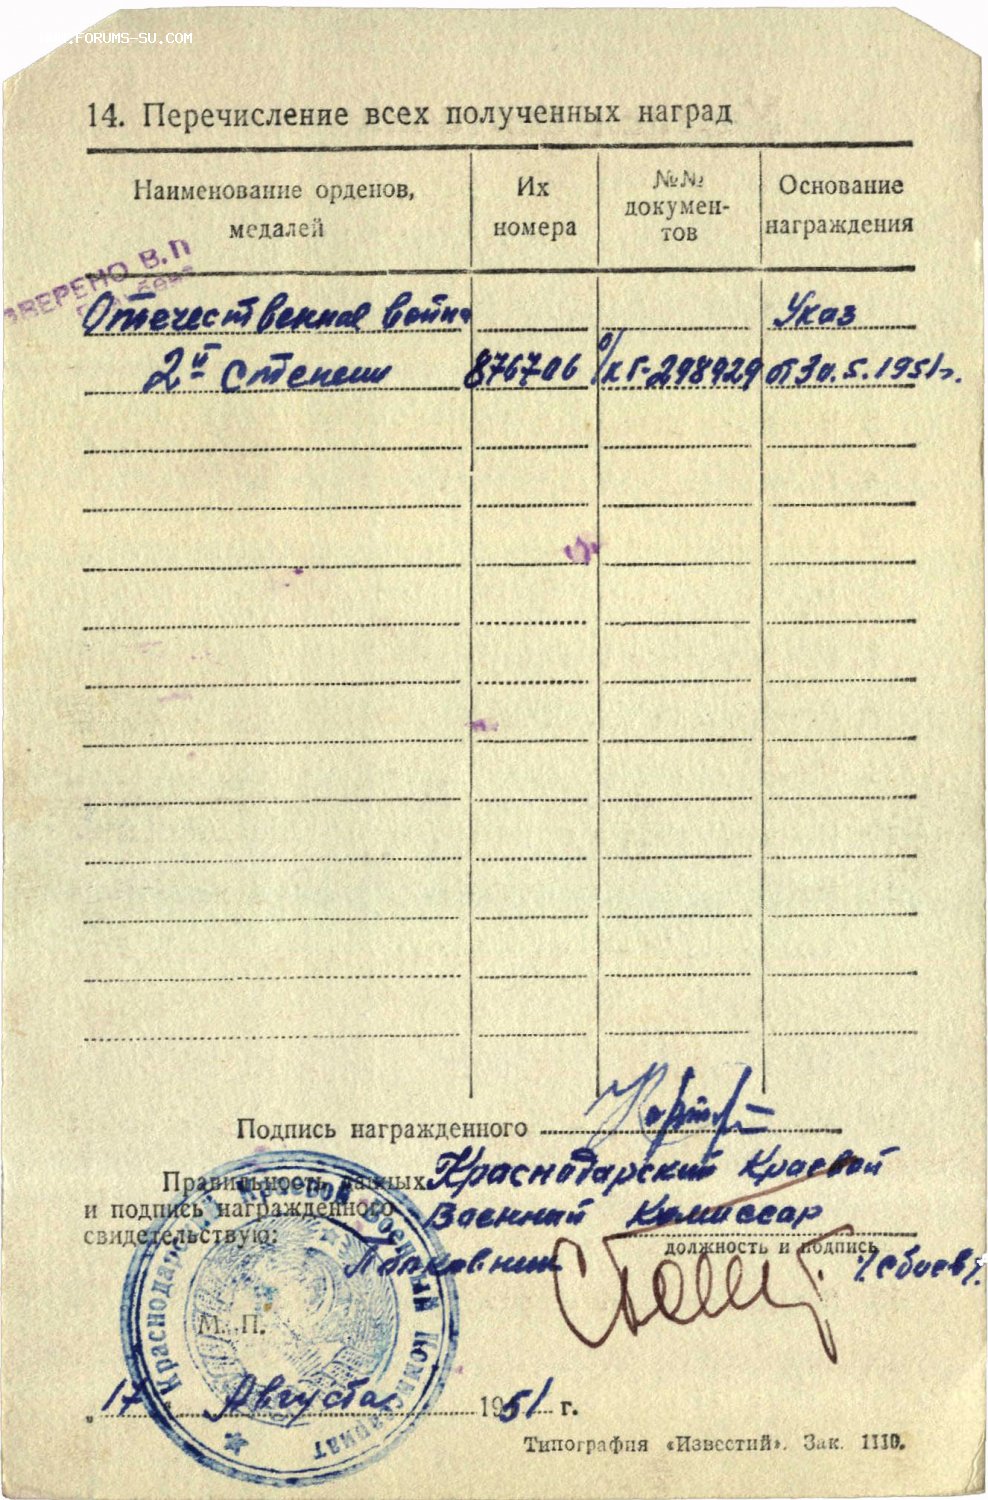 .FORUMS-SU.COM
14. Перечисление всех полученных наград
Наименование орденов,
медалей
Их
номера
№№
докумен-
тов
Основание
награждения
ВЕРЕНО В.П
Отечественная война
2й степени
876706
КГ-298929
Указ
от 30.5.1951г.
Подпись награжденного
Правильность данных
и подпись награжденного
свидетельствую:
Краснодарский Краевой
Военный Комиссар
должность и подпись
Полковник
М. П.
Краснодарский Краевой Военный Комиссариат
„17" Августа 1951 г.
Типография «Известий». Зак. 1110.